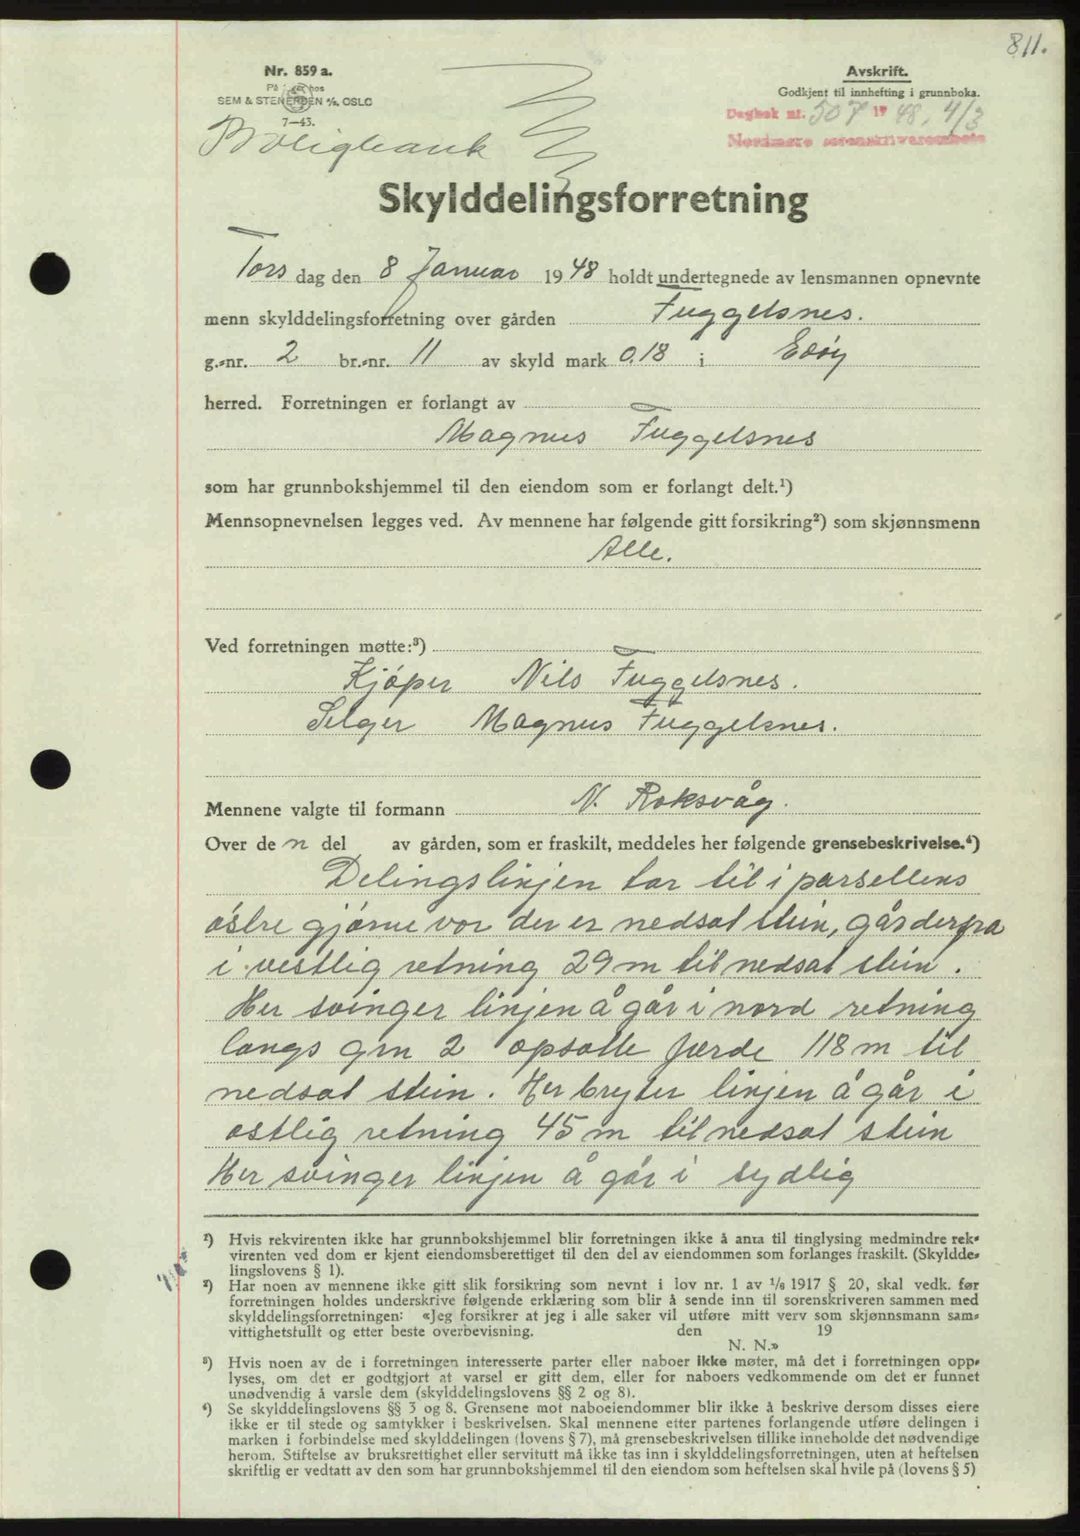 811.
Nr. 859 a.
På lager hos
SEM & STENERSEN A/S, OSLO
7—43.
Boligbank
Avskrift.
Godkjent til innhefting i grunnboka.
Dagbok nr. 507 19 48, 4/3
Nordmøre sorenskriverembete
Skylddelingsforretning
Tors dag den 8 Januar 19 48 holdt undertegnede av lensmannen opnevnte
menn skylddelingsforretning over gården Fuggelsnes.
g.-nr. 2 br.-nr. 11 av skyld mark 0,18 i Edøy
herred. Forretningen er forlangt av
Magnus Fuggelsnes
som har grunnbokshjemmel til den eiendom som er forlangt delt.¹)
Mennsopnevnelsen legges ved. Av mennene har følgende gitt forsikring²) som skjønnsmenn
Alle.
Ved forretningen møtte:³)
Kjøper Nils Fuggelsnes.
Selger Magnus Fuggelsnes.
Mennene valgte til formann N. Roksvåg.
Over de n del av gården, som er fraskilt, meddeles her følgende grensebeskrivelse.⁴)
Delingslinjen tar til i parsellens
østre gjørne vor der er nedsat stein, går derfra
i vestlig retning 29 m til nedsat stein.
Her svinger linjen å går i nord retning
langs grn 2 opsatte færde 118 m til
nedsat stein. Her bryter linjen å går i
østlig retning 45 m til nedsat stein
Her svinger linjen å går i sydlig
¹) Hvis rekvirenten ikke har grunnbokshjemmel blir forretningen ikke å anta til tinglysing medmindre rek-
virenten ved dom er kjent eiendomsberettiget til den del av eiendommen som forlanges fraskilt. (Skyldde-
lingslovens § 1).
²) Har noen av mennene ikke gitt slik forsikring som nevnt i lov nr. 1 av 1/6 1917 § 20, skal vedk. før
forretningen holdes underskrive følgende erklæring som blir å sende inn til sorenskriveren sammen med
skylddelingsforretningen: «Jeg forsikrer at jeg i alle saker vil utføre mitt verv som skjønnsmann sam-
vittighetsfullt og etter beste overbevisning. den 19
N. N.»
³) Hvis noen av de i forretningen interesserte parter eller naboer ikke møter, må det i forretningen opp-
lyses, om det er godtgjort at varsel er gitt dem, eller for naboers vedkommende om det er funnet
unødvendig å varsle dem (skylddelingslovens §§ 2 og 8).
⁴) Se skylddelingslovens §§ 3 og 8. Grensene mot naboeiendommer blir ikke å beskrive dersom disses eiere
ikke er til stede og samtykker i beskrivelsen. Skal mennene etter partenes forlangende utføre delingen i
marken i forbindelse med skylddelingen (lovens § 7), må grensebeskrivelsen tillike inneholde det nødvendige
herom. Stiftelse av bruksrettighet eller servitutt må ikke tas inn i skylddelingsforretningen, uten at heftelsen
skriftlig er vedtatt av den som har grunnbokshjemmel til den eiendom som heftelsen skal hvile på (lovens § 5)